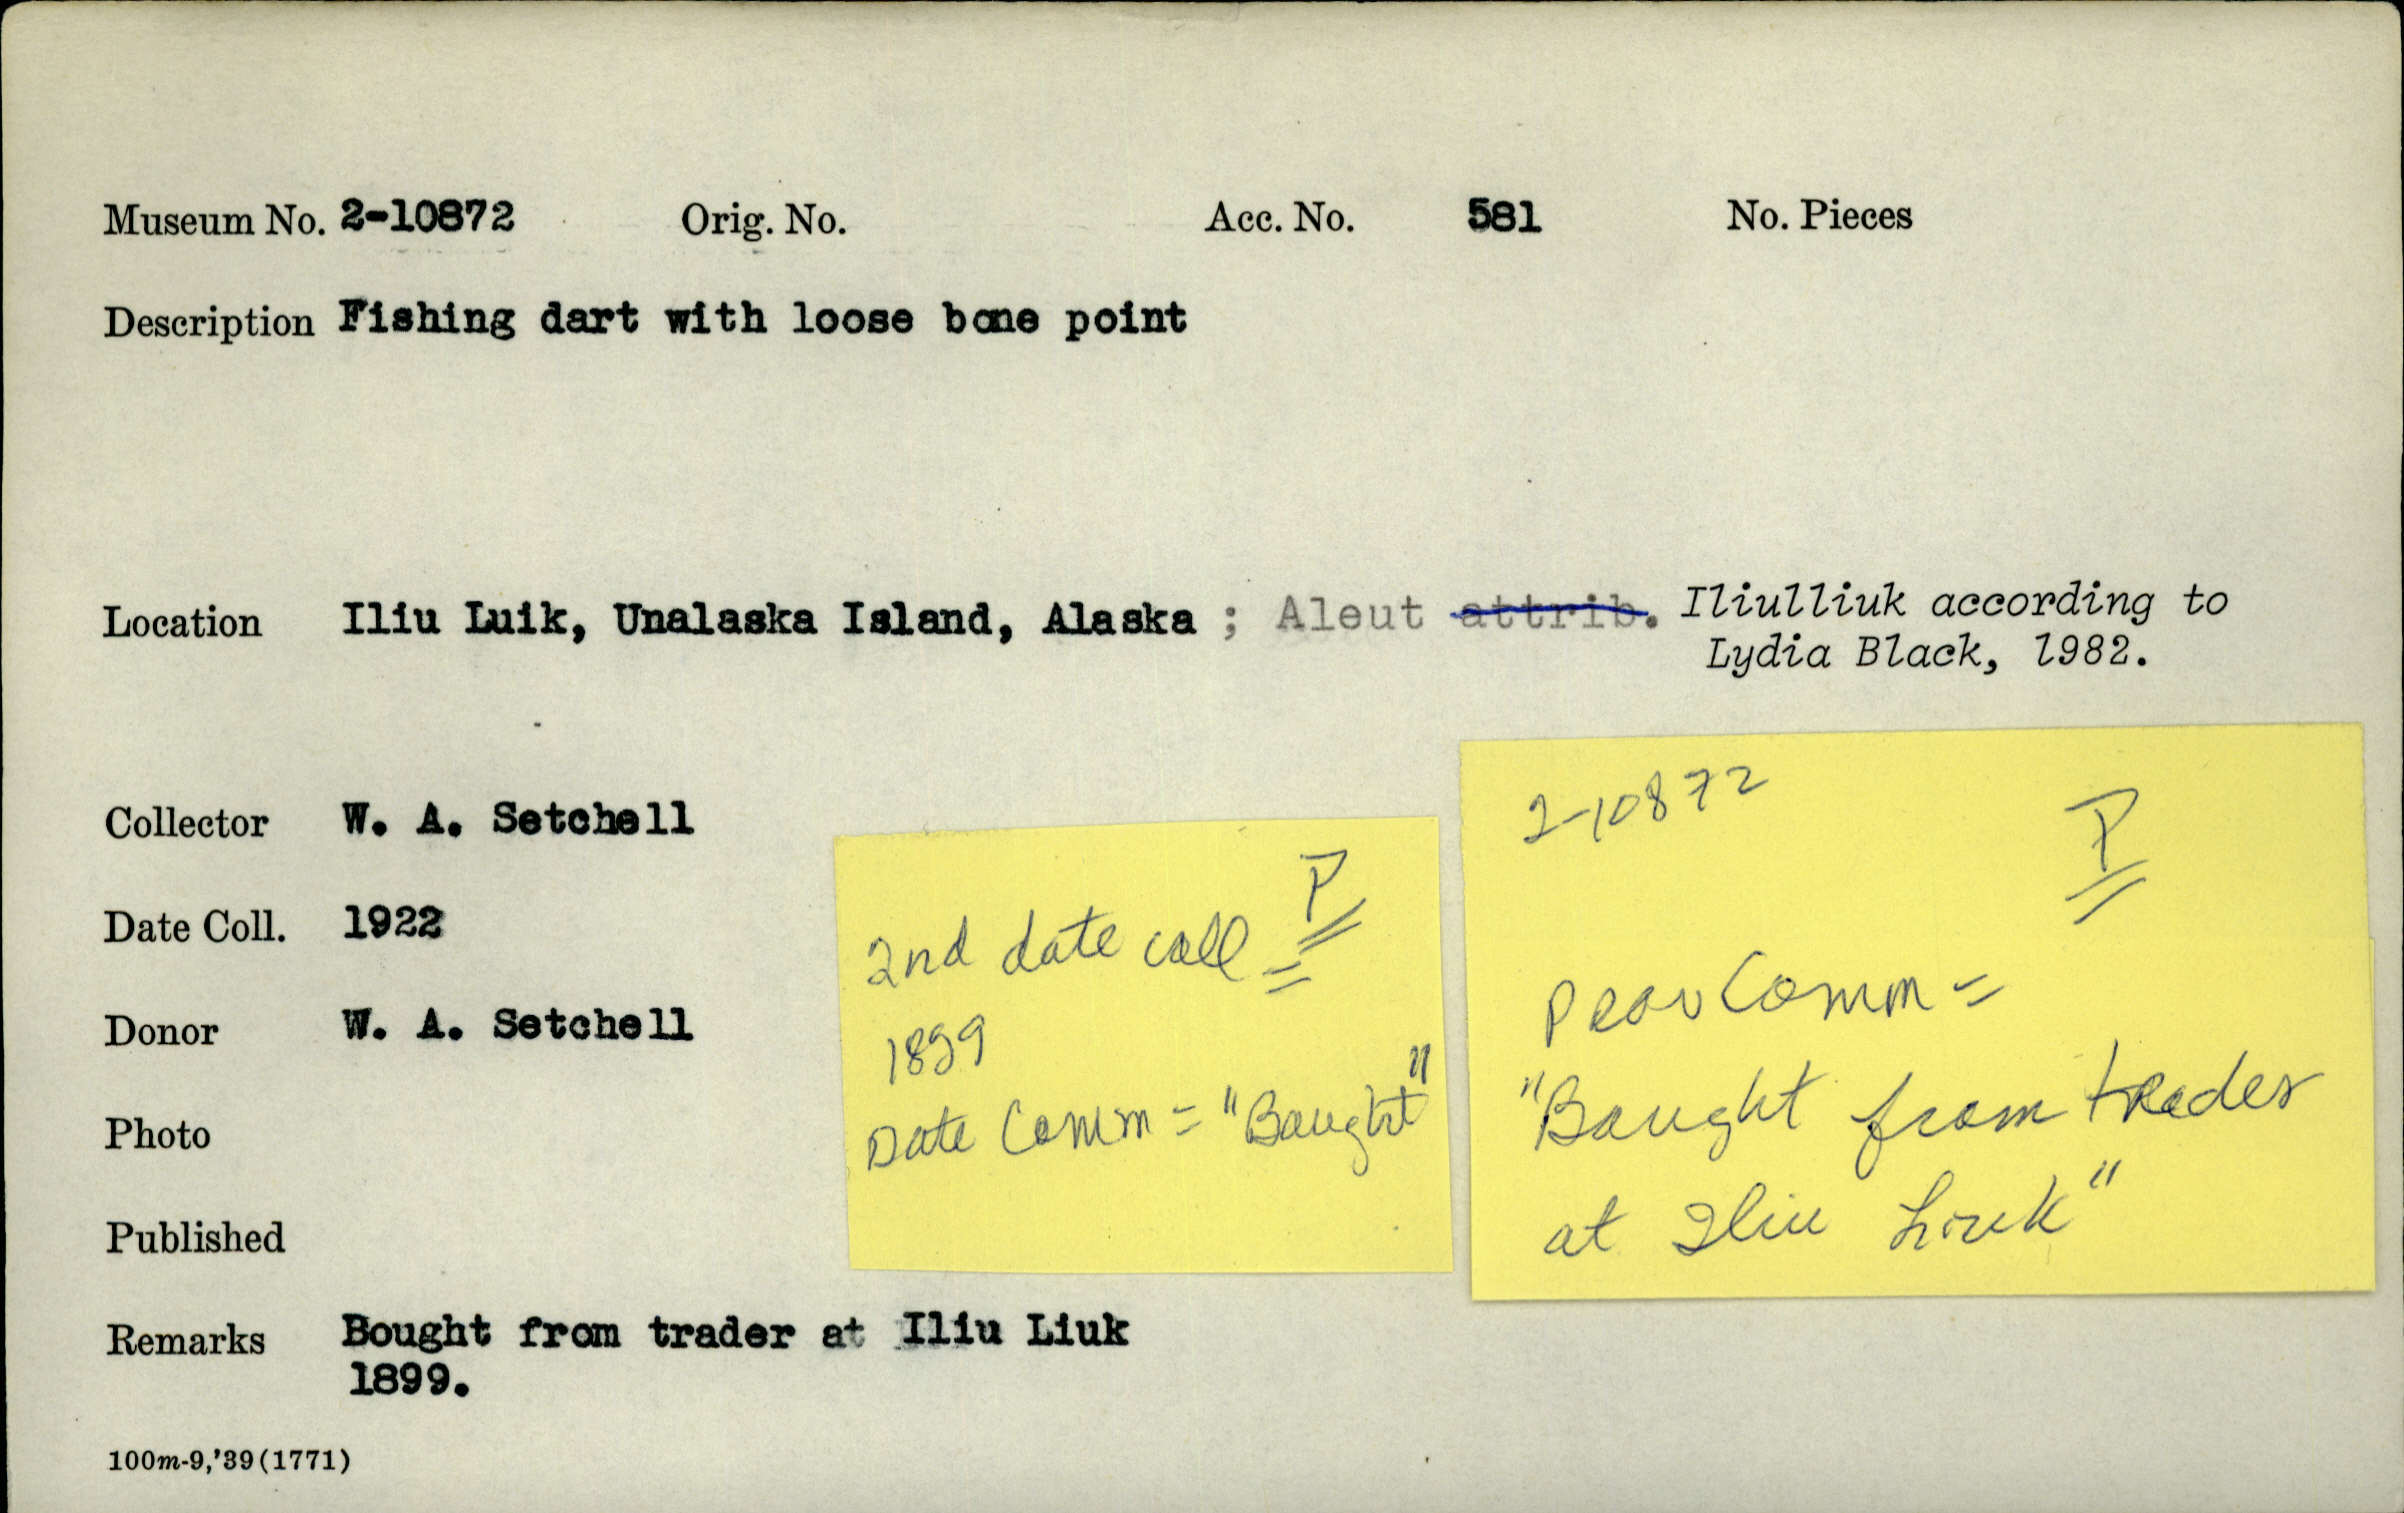 Museum No. 2-10872 Orig. No. Acc. No. 581 No. Pieces
Description Fishing dart with loose bone point
Location Iliu Luik, Unalaska Island, Alaska ; Aleut attrib. Iliulliuk according to
Lydia Black, 1982.
Collector W. A. Setchell
Date Coll. 1922
Donor W. A. Setchell
Photo
Published
Remarks Bought from trader at Iliu Liuk
1899.
100m-9,'39(1771)
P
2nd date coll =
1899
Date Comm = "Bought"
2-10872
P
Prov Comm =
"Bought from trader
at Iliu Liuk"